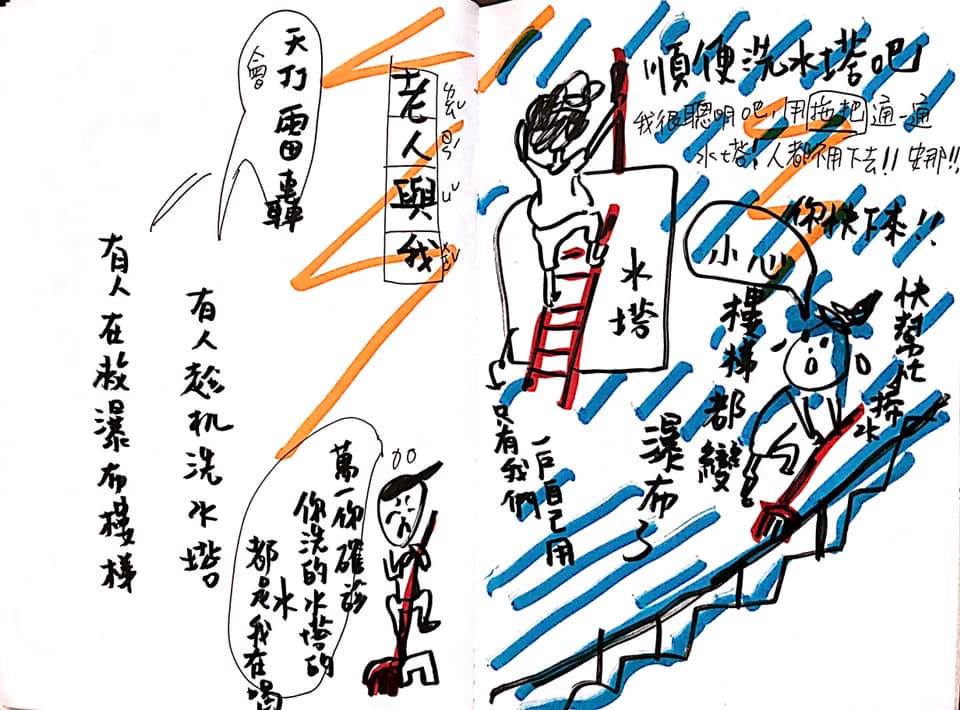 順便洗水塔吧
我很聰明吧,用拖把通一通
水塔!人都不用下去!!安那!!
你快下來!!
小心
快幫忙
掃水
樓梯都變
瀑布了
水塔
只有我們
一戶自己用
老人與我
會
天打雷轟
有人趁机洗水塔
有人在救瀑布樓梯
萬一你確診
你洗的水塔的
水
都是我在喝